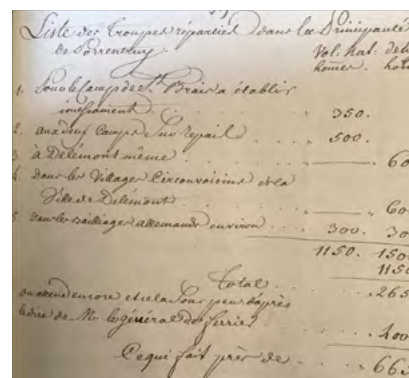 Liste des Troupes réparties dans la Principauté
de Porrentruy.
Vol. Nat. de
homes.
1. Pour le Camp de St. Brais a établir
incessament . . . . 350.
2. aux deux Camps sur repail . . . 500.
3. à Delémont même . . . 60
4. dans les Villages Circonvoisins de la
Ville de Delémont . . . 60
5. dans les Bailliages allemands environ . . . 300. 30
1150. 150
1150
Total . . . 265
on attend encore et cela sous peu d'après
le dire de M. le général de ferrier . . . 400
Ce qui fait près de . . . 665